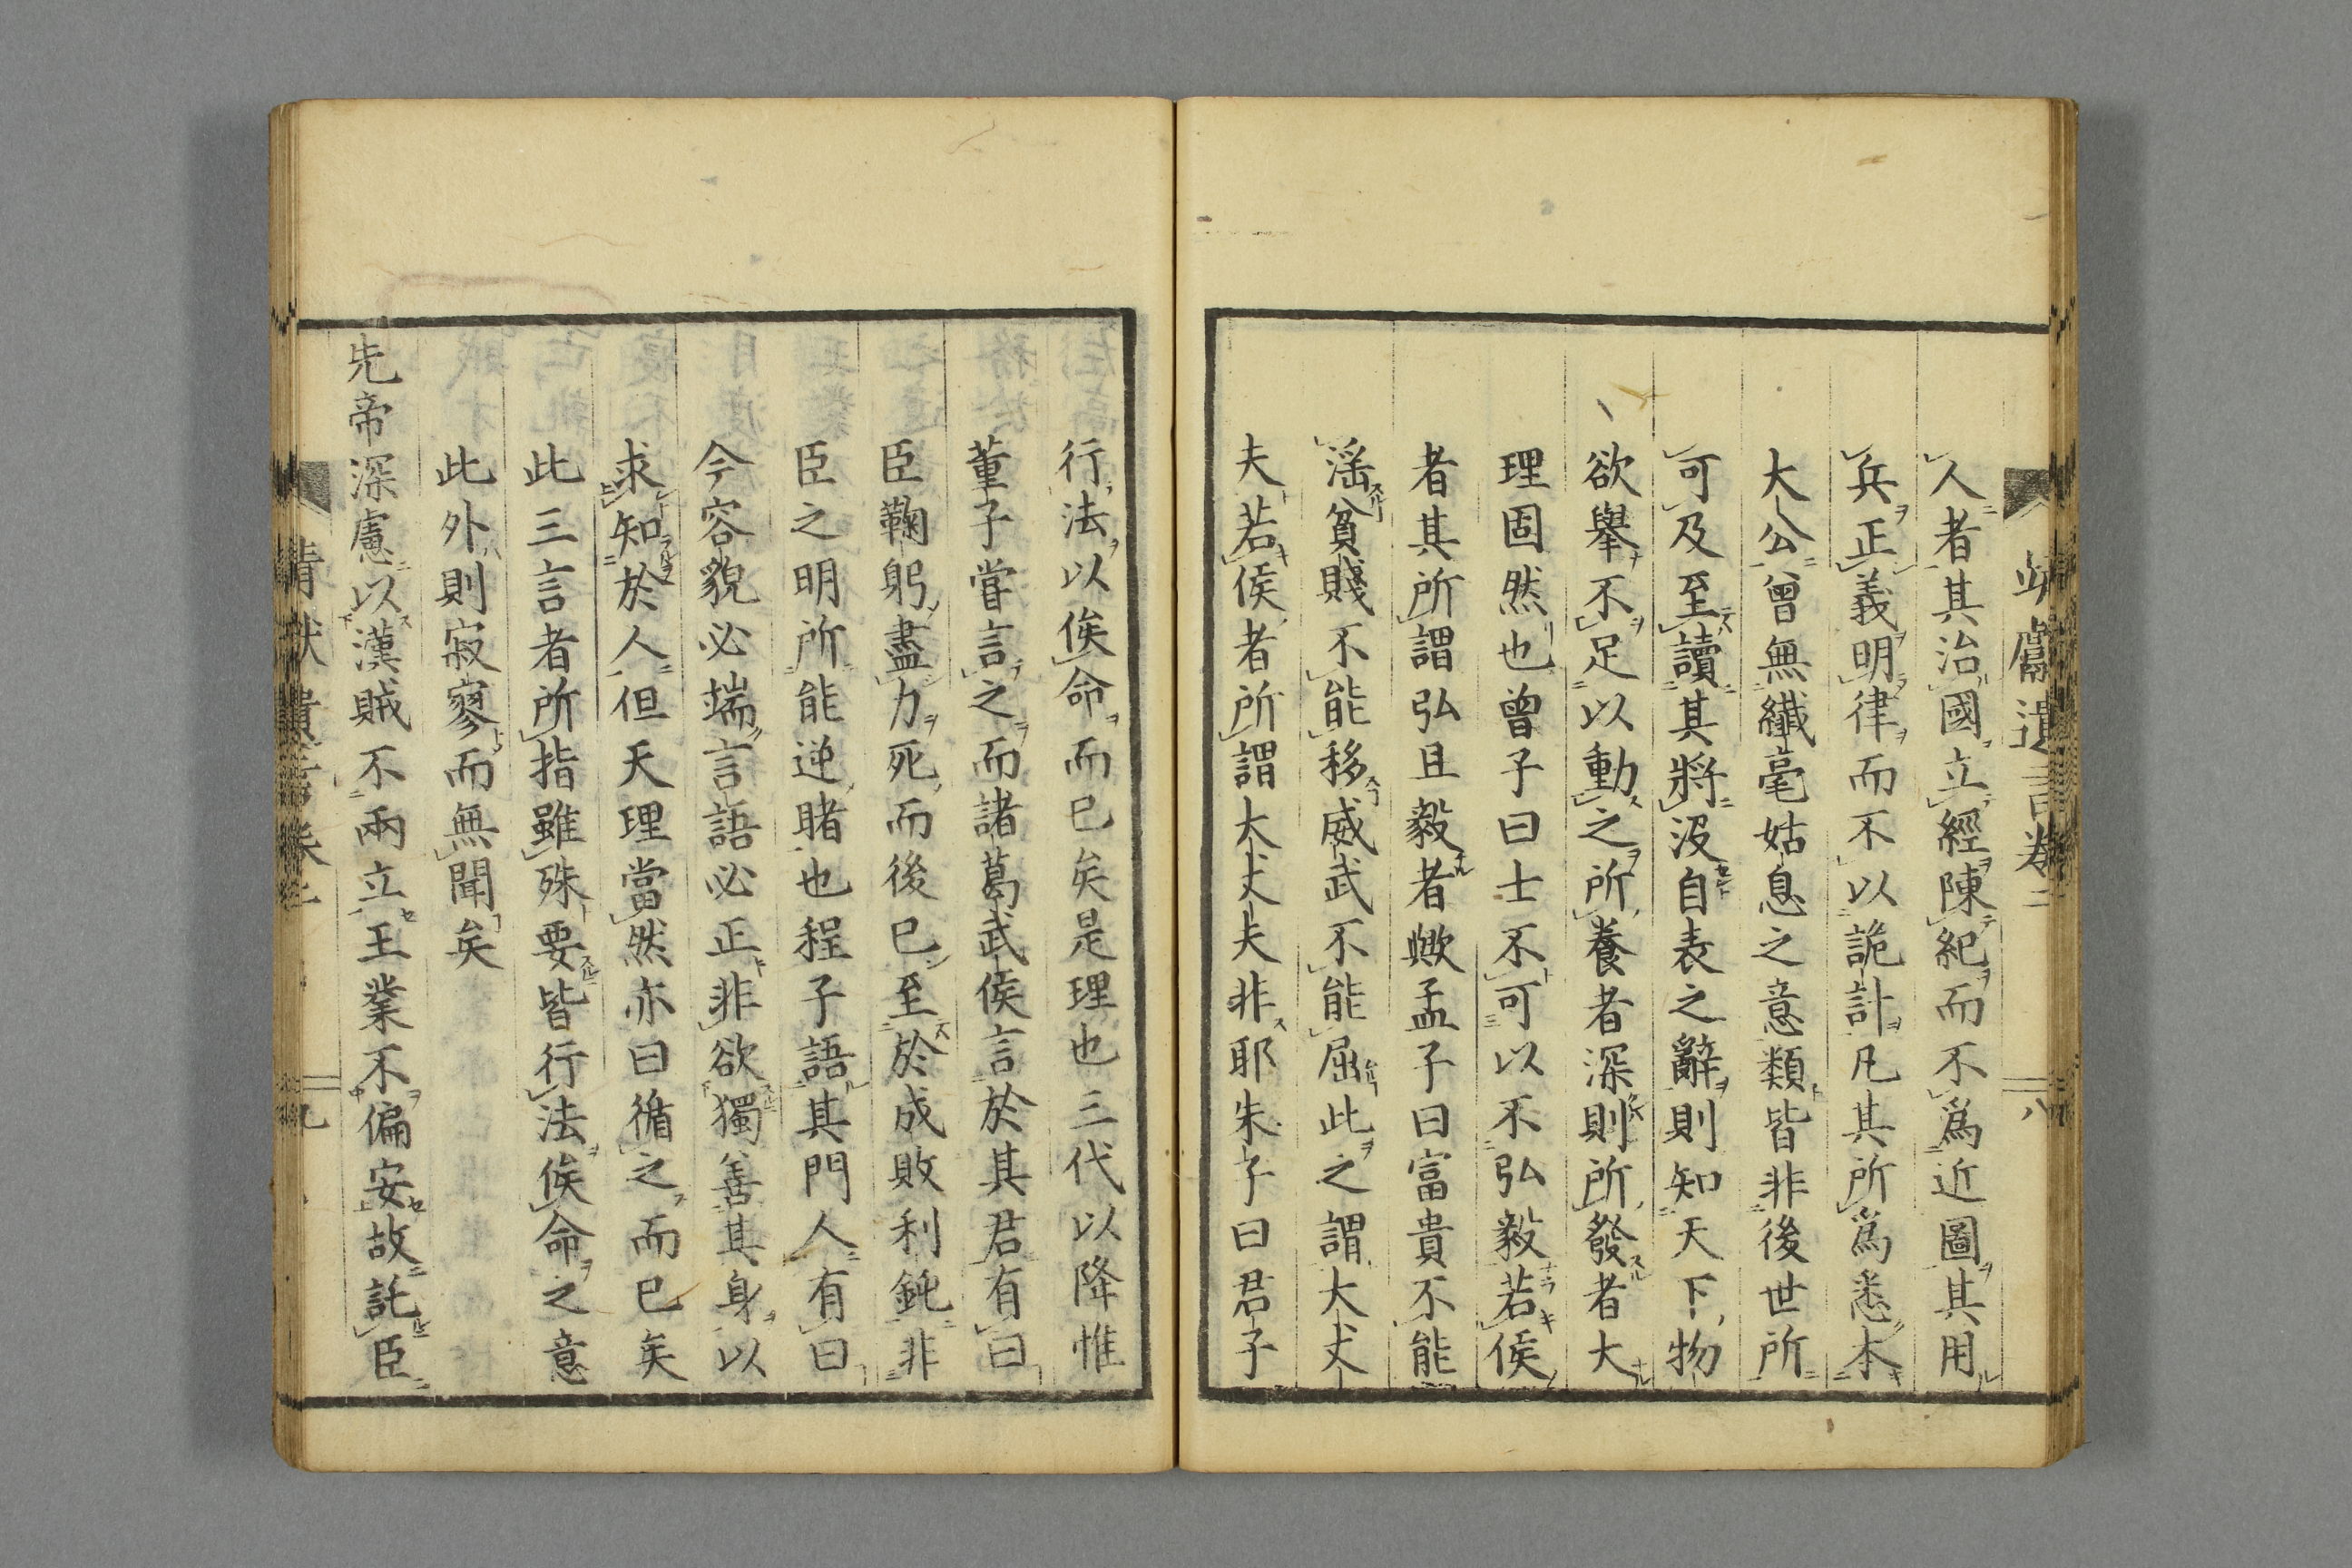 人者其治國立經陳紀而不爲近圖其用
兵正義明律而不以詭計凡其所爲悉本
大公曾無纖毫姑息之意類皆非後世所
可及至讀其將沒自表之辭則知天下物
欲舉不足以動之所養者深則所發者大
理固然也曾子曰士不可以不弘毅若侯
者其所謂弘且毅者歟孟子曰富貴不能
滛貧賤不能移威武不能屈此之謂大丈
夫若侯者所謂大丈夫非耶朱子曰君子
行法以俟命而已矣是理也三代以降惟
董子甞言之而諸葛武侯言於其君有曰
臣鞠躬盡力死而後已至於成敗利鈍非
臣之明所能逆睹也程子語其門人有曰
今容貌必端言語必正非欲獨善其身以
求知於人但天理當然亦曰循之而已矣
此三言者所指雖殊要皆行法俟命之意
此外則寂寥而無聞矣
先帝深慮以漢賊不兩立王業不偏安故託臣